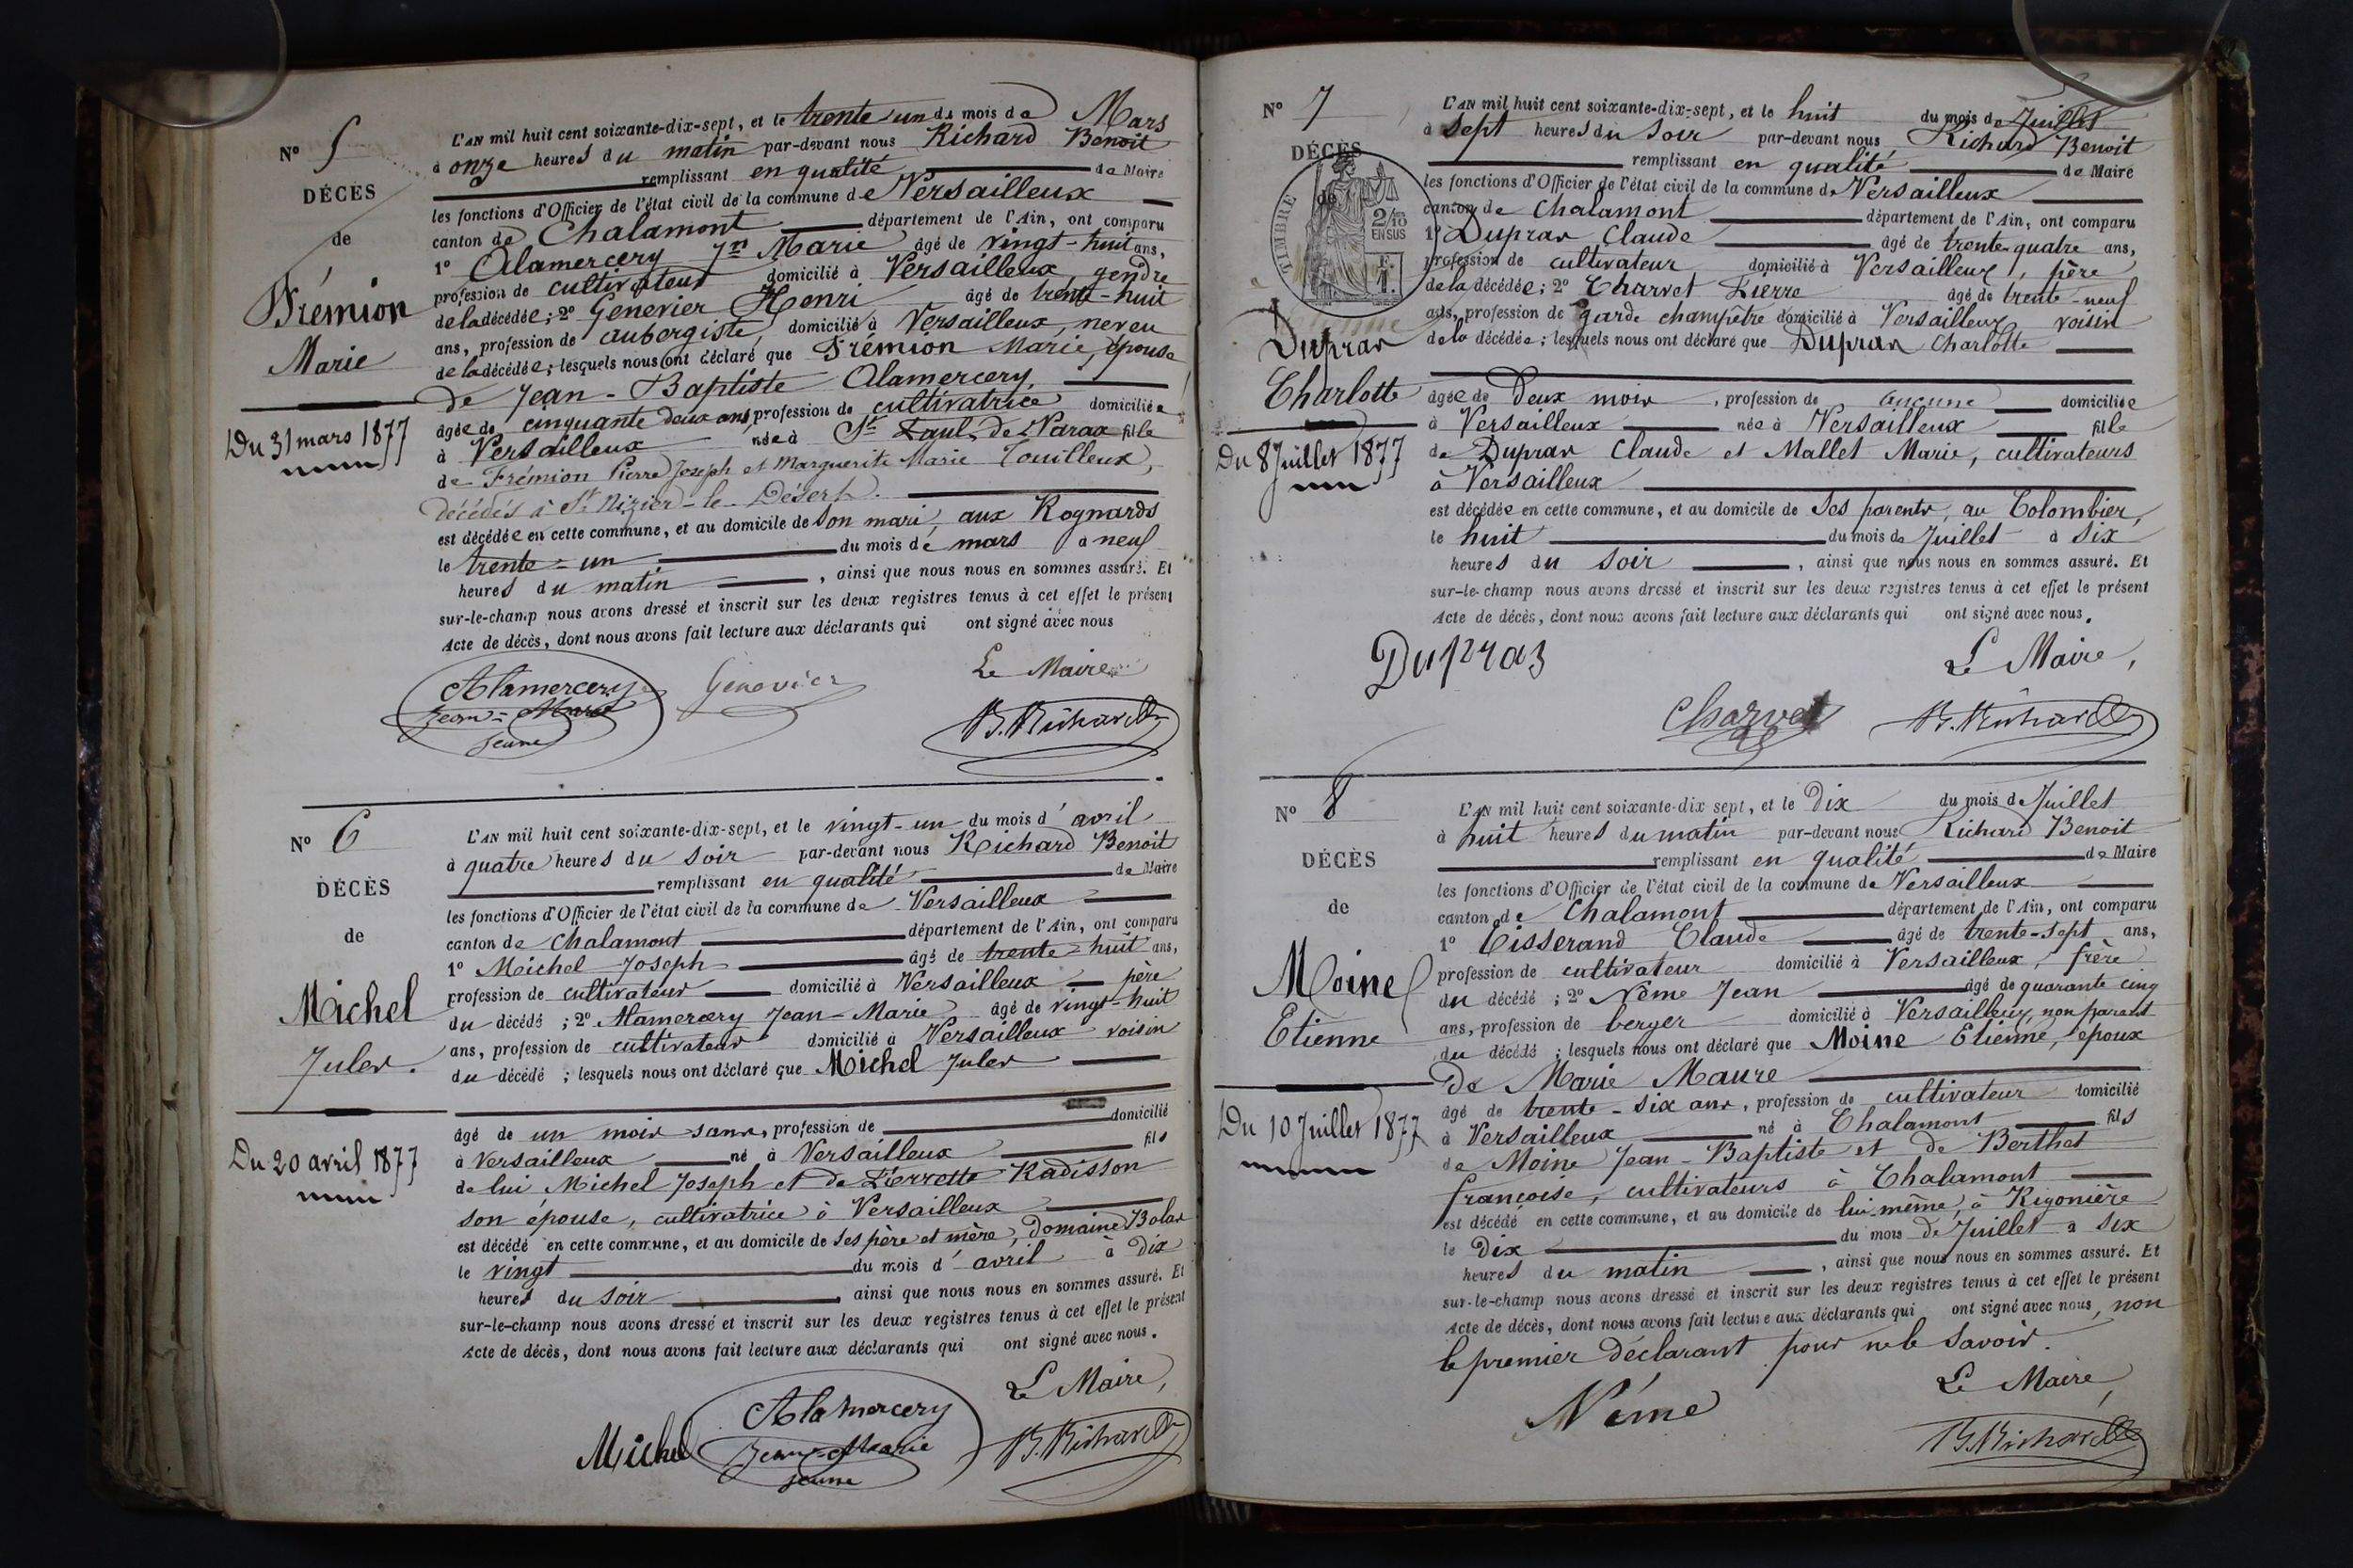 N° 5
DÉCÈS
de
Frémion
Marie
Du 31 mars 1877
L'AN mil huit cent soixante-dix-sept, et le trente un du mois de Mars
à onze heures du matin par-devant nous Richard Benoit
remplissant en qualité de Maire
les fonctions d'Officier de l'état civil de la commune de Versailleux
canton de Chalamont département de l'Ain, ont comparu
1° Alamercery Jn Marie âgé de vingt-huit ans,
profession de cultivateur domicilié à Versailleux, gendre
de la décédée; 2° Genevier Henri âgé de trente-huit
ans, profession de aubergiste, domicilié à Versailleux, neveu
de la décédée; lesquels nous ont déclaré que Frémion Marie, épouse
de Jean-Baptiste Alamercery,
âgée de cinquante deux ans, profession de cultivatrice domiciliée
à Versailleux née à St Paul de Varax fille
de Frémion Pierre Joseph et Marguerite Marie Touilleux,
décédés à St Nizier-le-Désert.
est décédée en cette commune, et au domicile de son mari, aux Rognards
le trente-un du mois de mars à neuf
heures du matin, ainsi que nous nous en sommes assuré. Et
sur-le-champ nous avons dressé et inscrit sur les deux registres tenus à cet effet le présent
Acte de décès, dont nous avons fait lecture aux déclarants qui ont signé avec nous
Le Maire
Alamercery
Jean-Marie
jeune
Genevier
B. Richard
N° 6
DÉCÈS
de
Michel
Jules.
Du 20 avril 1877
L'AN mil huit cent soixante-dix-sept, et le vingt-un du mois d'avril
à quatre heures du soir par-devant nous Richard Benoit
remplissant en qualité de Maire
les fonctions d'Officier de l'état civil de la commune de Versailleux
canton de Chalamont département de l'Ain, ont comparu
1° Michel Joseph âgé de trente-huit ans,
profession de cultivateur domicilié à Versailleux père
du décédé; 2° Alamercery Jean-Marie âgé de vingt-huit
ans, profession de cultivateur domicilié à Versailleux voisin
du décédé; lesquels nous ont déclaré que Michel Jules
âgé de un mois sans, profession de domicilié
à Versailleux né à Versailleux fils
de lui Michel Joseph et de Pierrette Radisson
son épouse, cultivatrice à Versailleux
est décédé en cette commune, et au domicile de ses père et mère, domaine Bolas
le vingt du mois d'avril à dix
heures du soir ainsi que nous nous en sommes assuré. Et
sur-le-champ nous avons dressé et inscrit sur les deux registres tenus à cet effet le présent
Acte de décès, dont nous avons fait lecture aux déclarants qui ont signé avec nous.
Le Maire,
Michel
Alamercery
Jean-Marie
jeune
B. Richard
N° 7
DÉCÈS
de
TIMBRE
2/10
EN SUS
F.
1.
Dupras
Charlotte
Du 8 Juillet 1877
L'AN mil huit cent soixante-dix-sept, et le huit du mois de Juillet
à sept heures du soir par-devant nous Richard Benoit
remplissant en qualité de Maire
les fonctions d'Officier de l'état civil de la commune de Versailleux
canton de Chalamont département de l'Ain, ont comparu
1° Dupras Claude âgé de trente-quatre ans,
profession de cultivateur domicilié à Versailleux, père
de la décédée; 2° Charvet Pierre âgé de trente-neuf
ans, profession de garde champêtre domicilié à Versailleux voisin
de la décédée; lesquels nous ont déclaré que Dupras Charlotte
âgée de Deux mois, profession de aucune domiciliée
à Versailleux née à Versailleux fille
de Dupras Claude et Mallet Marie, cultivateurs
à Versailleux
est décédée en cette commune, et au domicile de Ses parents, au Colombier,
le huit du mois de Juillet à six
heures du soir, ainsi que nous nous en sommes assuré. Et
sur-le-champ nous avons dressé et inscrit sur les deux registres tenus à cet effet le présent
Acte de décès, dont nous avons fait lecture aux déclarants qui ont signé avec nous.
Dupras
Le Maire,
Charvet
B. Richard
N° 8
DÉCÈS
de
Moine
Etienne
Du 10 Juillet 1877
L'AN mil huit cent soixante-dix sept, et le Dix du mois de Juillet
à huit heures du matin par-devant nous Richard Benoit
remplissant en qualité de Maire
les fonctions d'Officier de l'état civil de la commune de Versailleux
canton de Chalamont département de l'Ain, ont comparu
1° Tisserand Claude âgé de trente-sept ans,
profession de cultivateur domicilié à Versailleux, frère
du décédé; 2° Nême Jean âgé de quarante cinq
ans, profession de berger domicilié à Versailleux, non parent
du décédé; lesquels nous ont déclaré que Moine Etienne, epoux
De Marie Maure
âgé de trente-six ans, profession de cultivateur domicilié
à Versailleux né à Chalamont fils
de Moine Jean-Baptiste et de Berthet
françoise, cultivateurs à Chalamont
est décédé en cette commune, et au domicile de lui même, à Rigonière
le Dix du mois De Juillet à six
heures du matin, ainsi que nous nous en sommes assuré. Et
sur-le-champ nous avons dressé et inscrit sur les deux registres tenus à cet effet le présent
Acte de décès, dont nous avons fait lecture aux déclarants qui ont signé avec nous, non
le premier déclarant pour ne le savoir.
Le Maire,
Néme
B. Richard